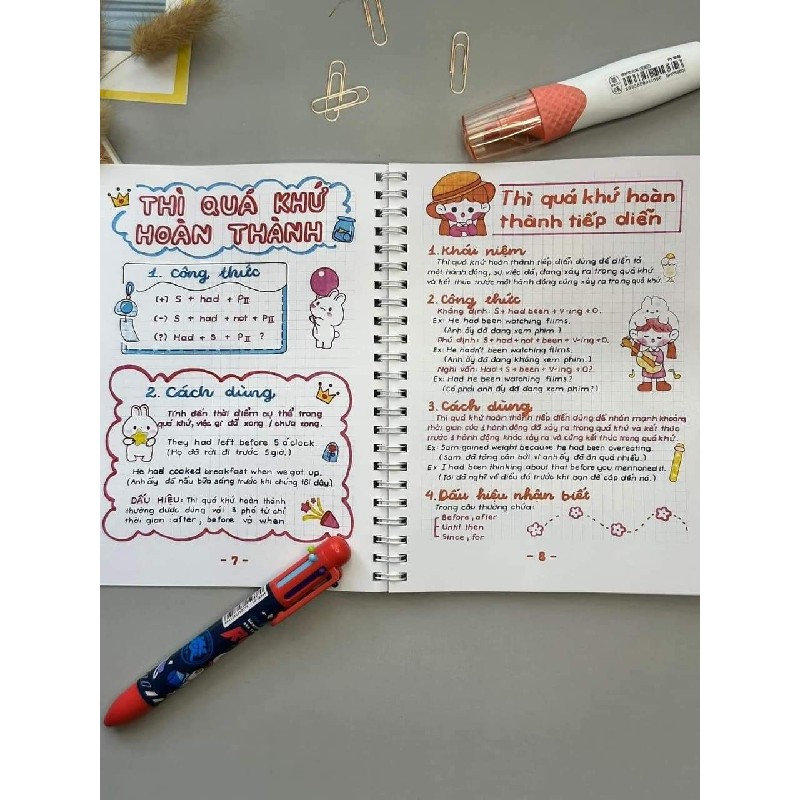 THÌ QUÁ KHỨ
HOÀN THÀNH
1. Công thức
(+) S + had + PII
(-) S + had + not + PII
(?) Had + S + PII ?
2. Cách dùng
Tính đến thời điểm cụ thể trong
quá khứ, việc gì đã xong / chưa xong.
They had left before 5 o'clock
(Họ đã rời đi trước 5 giờ.)
He had cooked breakfast when we got up.
(Anh ấy đã nấu bữa sáng trước khi chúng tôi dậy)
DẤU HIỆU: Thì quá khứ hoàn thành
thường được dùng với 3 phó từ chỉ
thời gian: after, before và when
- 7 -
Thì quá khứ hoàn
thành tiếp diễn
1. Khái niệm
Thì quá khứ hoàn thành tiếp diễn dùng để diễn tả
một hành động, sự việc đã, đang xảy ra trong quá khứ
và kết thúc trước một hành động cũng xảy ra trong quá khứ.
2. Công thức
Khẳng định: S + had been + V-ing + O.
Ex: He had been watching films.
(Anh ấy đã đang xem phim.)
Phủ định: S + had + not + been + V-ing + O.
Ex: He hadn't been watching films.
(Anh ấy đã đang không xem phim.)
Nghi vấn: Had + S + been + V-ing + O?
Ex: Had he been watching films?
(Có phải anh ấy đã đang xem phim?)
3. Cách dùng
Thì quá khứ hoàn thành tiếp diễn dùng để nhấn mạnh khoảng
thời gian của 1 hành động đã xảy ra trong quá khứ và kết thúc
trước 1 hành động khác xảy ra và cũng kết thúc trong quá khứ.
Ex: Sam gained weight because he had been overeating.
(Sam đã tăng cân bởi vì anh ấy đã ăn quá nhiều.)
Ex: I had been thinking about that before you mentioned it.
(Tôi đã nghĩ về điều đó trước khi bạn đề cập đến nó.)
4. Dấu hiệu nhận biết
Trong câu thường chứa:
Before, after
Until then
Since, for
- 8 -